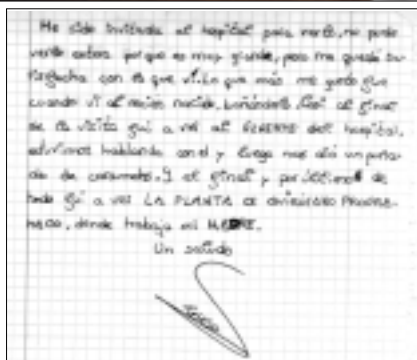 He sido invitada al hospital para verlo, no pude
verlo entero porque es muy grande, pero me quedé sa-
tisfecha con lo que vi. Lo que más me gustó fue
cuando vi al recien nacido, bañándolo. Casi al final
de la visita fui a ver al GERENTE del hospital,
estuvimos hablando con el y luego nos dió un puña-
do de caramelos. Y al final y por último de
todo fui a ver LA PLANTA DE
donde trabaja mi MADRE.
Un saludo